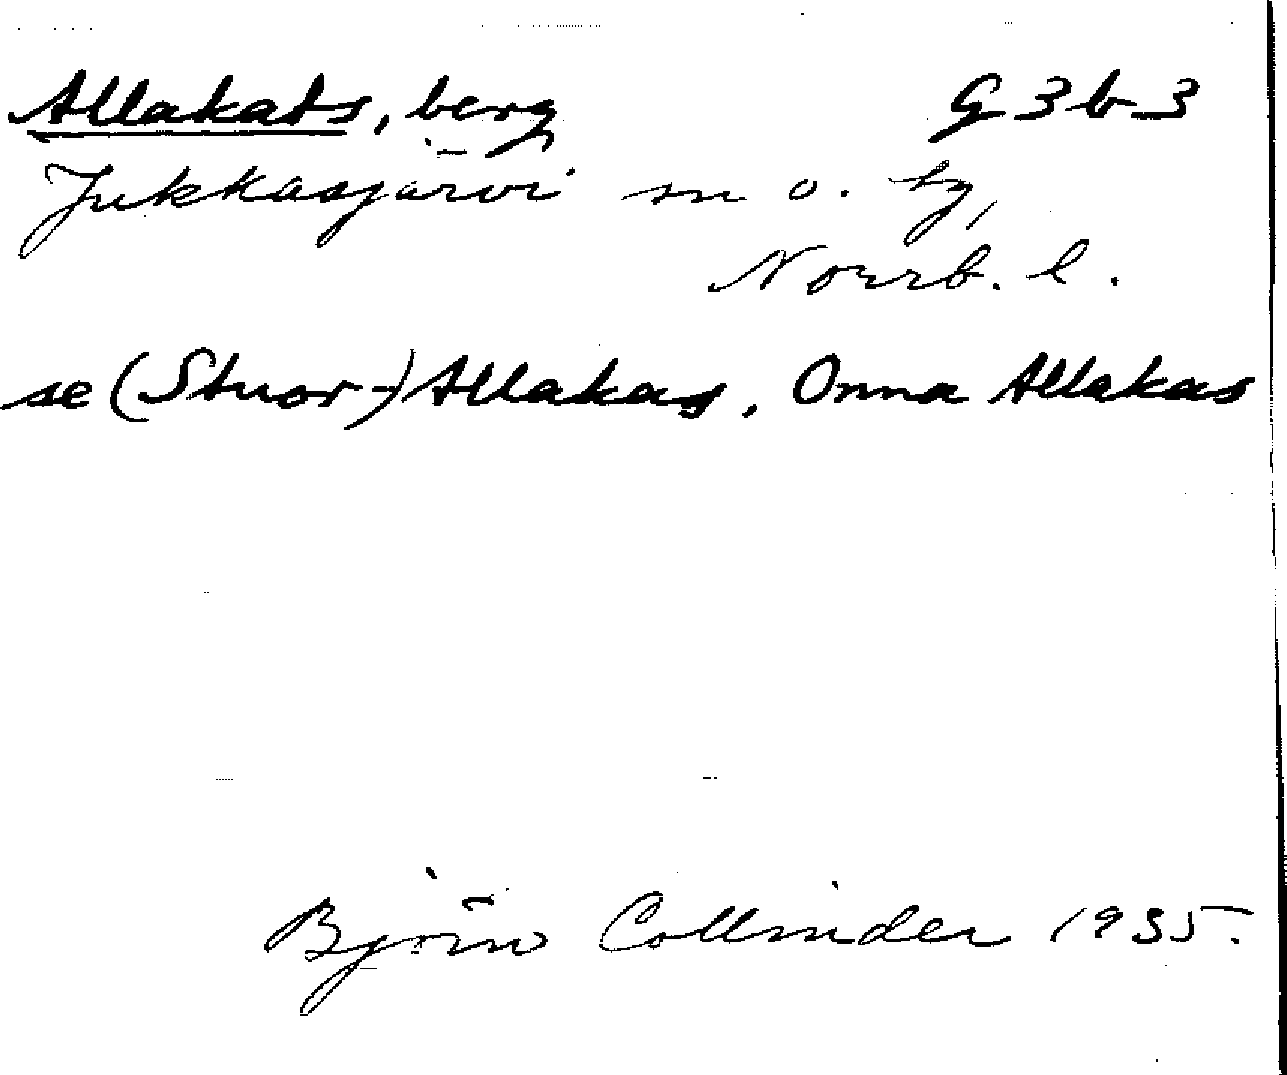 Allakats, berg G 3 b 3
Jukkasjärvi sn o. tg,
Norrb. l.
se (Stuor-) Allakas, Onna Allakas
Björn Collinder 1935.